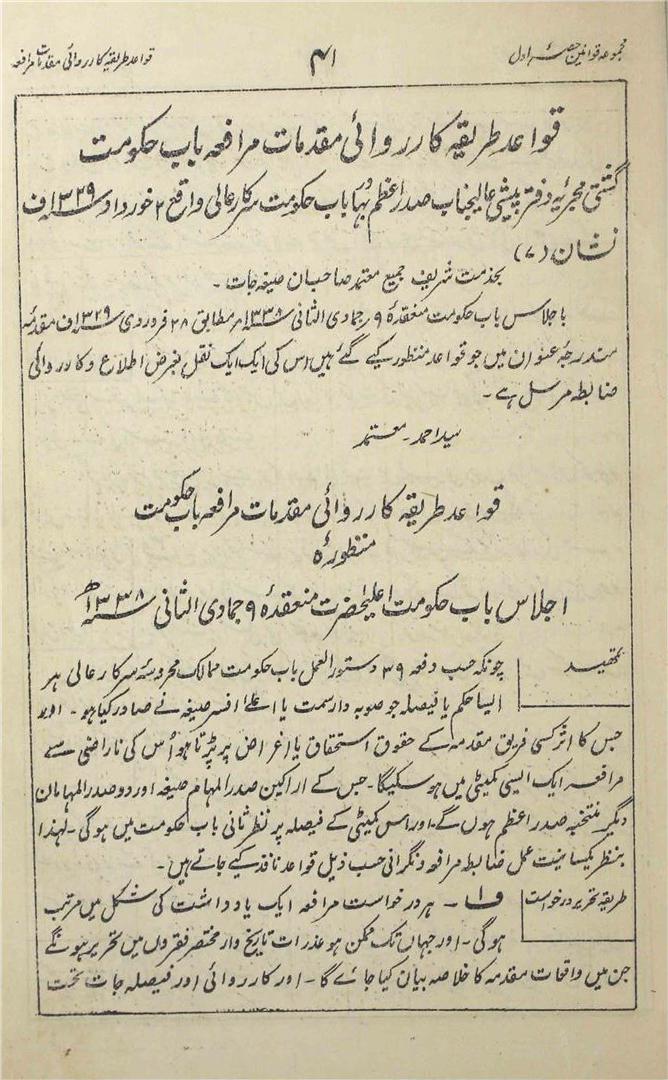 مجموعہ قوانین حصہ اول ۴۱ قواعد طریقہ کارروائی مقدمات مرافعہ
قواعد طریقہ کارروائی مقدمات مرافعہ باب حکومت
گشتی مجریۂ دفتر پیشی عالیجناب صدر اعظم بہادر باب حکومت سرکار عالی واقع ۲ خورداد ۱۳۲۹؁ ف
نشان (۷)
بخدمت شریف جمیع معتمد صاحبان صیغہ جات ۔
باجلاس باب حکومت منعقدۂ ۹ جمادی الثانی ۱۳۳۸؁ ھ مطابق ۲۸ فروردی ۱۳۲۹؁ ف مقدمہ
مندرجۂ عنوان میں جو قواعد منظور کیے گئے ہیں اس کی ایک ایک نقل بغرض اطلاع و کارروائی
ضابطہ مرسل ہے ۔
سید احمد ۔ معتمد
قواعد طریقہ کارروائی مقدمات مرافعہ باب حکومت
منظورہ
اجلاس باب حکومت اعلیٰحضرت منعقدۂ ۹ جمادی الثانی ۱۳۳۸؁ ھ
تمھید
چونکہ حسب دفعہ ۳۹ دستور العمل باب حکومت ممالک محروسۂ سرکار عالی ہر
ایسا حکم یا فیصلہ جو صوبہ دار سمت یا اعلےٰ افسر صیغہ نے صادر کیا ہو ۔ اور
جس کا اثر کسی فریق مقدمہ کے حقوق استحقاق یا اغراض پر پڑتا ہو اُس کی ناراضی سے
مرافعہ ایک ایسی کمیٹی میں ہو سکیگا ۔ جس کے اراکین صدر المہام صیغہ اور دو صدر المہامان
دیگر منتخبہ صدر اعظم ہوں گے ۔ اور اس کمیٹی کے فیصلہ پر نظر ثانی باب حکومت میں ہوگی ۔ لہذا
بنظر یکسانیت عمل ضابطہ مرافعہ و نگرانی حسب ذیل قواعد نافذ کیے جاتے ہیں ۔
طریقہ تحریر درخواست
ف ۱ ۔ ہر درخواست مرافعہ ایک یادداشت کی شکل میں مرتب
ہوگی ۔ اور جہاں تک ممکن ہو عذرات تاریخ وار مختصر فقروں میں تحریر ہونگے
جن میں واقعات مقدمہ کا خلاصہ بیان کیا جائے گا ۔ اور کارروائی اور فیصلہ جات تحت